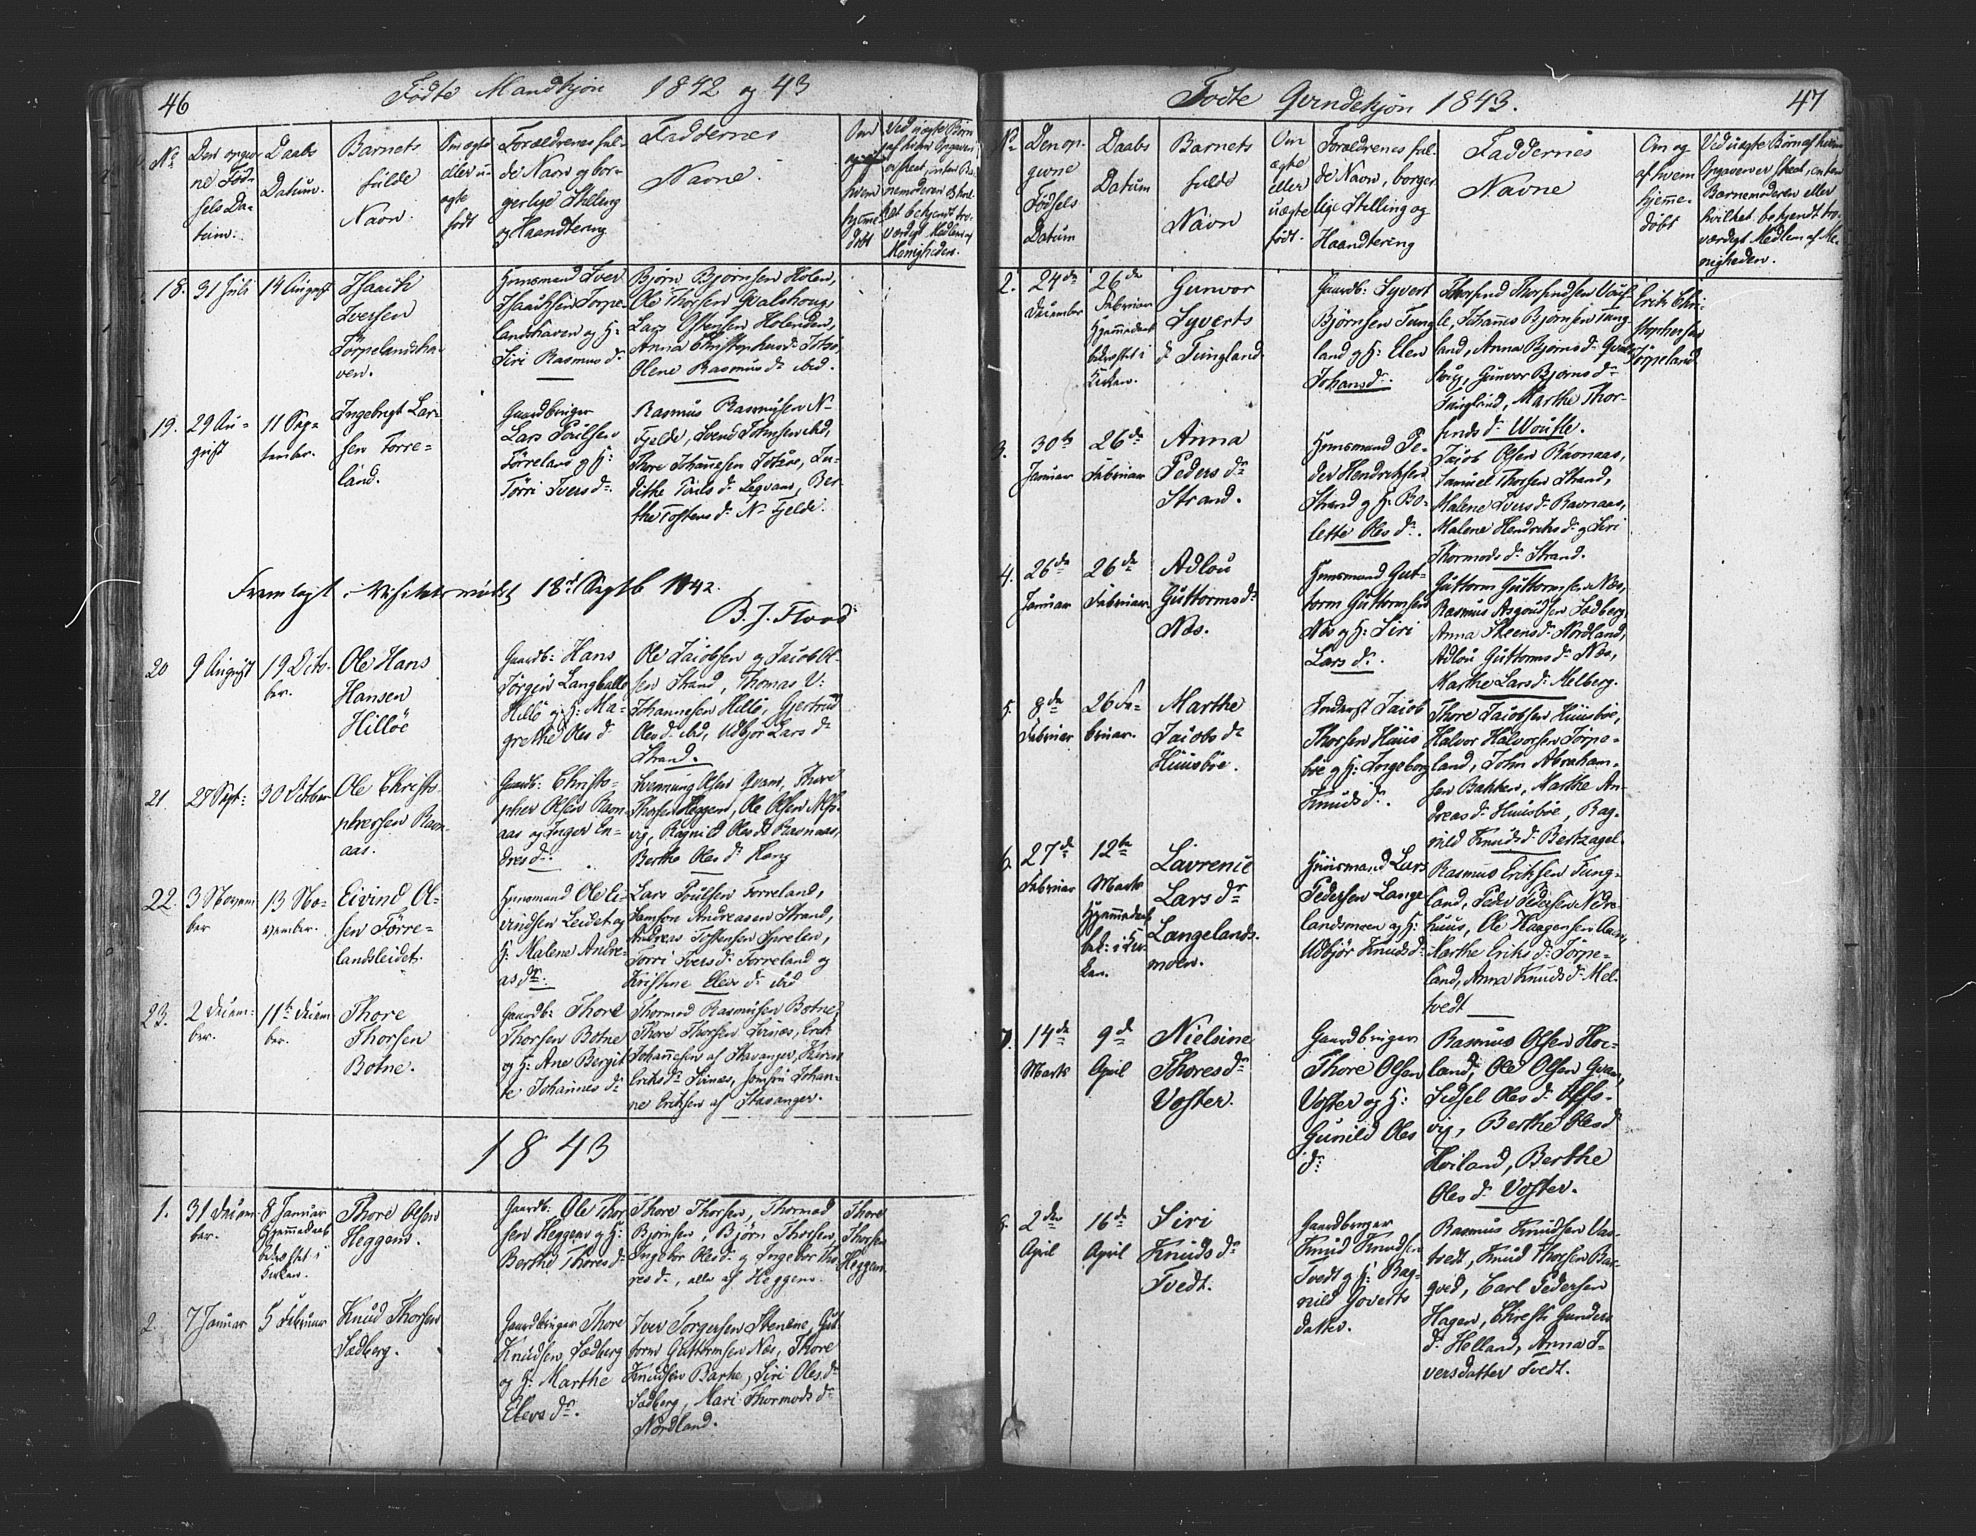 46
Fødte Mandkjøn 1842 og 43
No
Den opgiv-
ne Fød-
sels Da-
tum.
Daabs
Datum.
Barnets
fulde
Navn.
Om ægte
eller u-
ægte
født
Forældrenes ful-
de Navn og bor-
gerlige Stilling
og Haandtering
Faddernes
Navne.
18.
31 Juli
14 August
Isaach
Iversen
Tørpelandsha-
ven.
Huusmand Iver
Isaachsen Tørpe-
landshaven og H:
Siri Rasmus dr
Bjørn Bjørnsen Holen,
Ole Thorsen Qvalshoug,
Lars Olsen Holenden,
Anna Christophersdr Totsø,
Olene Rasmus dr ibid.
19.
29 Au-
gust
11 Sep-
tember.
Ingebrigt Lar-
sen Førre-
land.
Gaardbruger
Lars Poulsen
Førreland og H:
Tørri Ivers dr.
Rasmus Rasmusen N-
Fjelde, Svend Johnsen ibid,
Thore Johannesen Totsøe,
dithe Poulsdr Legvam, Ber-
the Tostens dr N- Fjelde.
Fremlagt i Visitatsmødet 18d Septb 1842.
B. J. Flood
20
9 August
19 Octo-
ber.
Ole Hans
Hansen
Hilløe
Gaardb: Hans
Jørgen Langballe
Hillø og H: Ma-
grethe Oles d
Ole Jacobsen og Jacob Ol-
sen Strand, Thomas V:
Johannesen Hillø, Gjertrud
Oles d. ibid, Udbjør Lars dr
Strand.
21.
27 Sept:
30 October
Ole Christo-
phersen Ravn-
aas.
Gaardb: Christo-
pher Olsen Ravn-
aas og Inger En-
dres dr.
Svennung Olsen Qvam, Thore
Thorsen Heggem, Ole Olsen Alfs-
vig, Ragnild Oles dr Ravnaas,
Berthe Oles dr Haug
22.
3 Novem-
ber
13 No-
vember.
Eivind Ol-
sen Førre-
landsleidet.
Huusmand Ole Ei-
vindsen Leidet og
H: Malene Andre-
as dr.
Lars Poulsen Førreland,
Samson Andreasen Strand,
Andreas Tostensen Sprelen,
Torri Ivers dr Førreland og
Kristine Elevs dr ibid
23.
2 Decem-
ber.
11te Decem-
ber.
Thore
Thorsen
Botne.
Gaardb: Thore
Thorsen Botne
og H: Ane Bergit-
te Johannes dr
Thormod Rasmusen Botne,
Thore Thorsen Svinæs, Erik
Johannesen af Stavanger, Karen
Eriks dr Svinæs, Jomfru Johan-
ne Eriksen af Stavanger.
1843
1.
31 Decem-
ber.
8 Januar
Hjemmedaab
bekræftet i
Kirken.
Thore Olsen
Heggem.
Gaardb: Ole Thor-
sen Heggem og H:
Berthe Thores dr
Thore Thorsen, Thormod
Bjørnsen, Bjørn Thorsen,
Ingebor Oles dr og Ingebor Tho-
res dr, alle af Heggem.
Thore
Thorsen
Heggem
2.
7 Januar
5 Februar
Knud Thorsen
Sædberg.
Gaardbruger Thore
Knudsen Sædberg
og H: Marthe
Elevs dr.
Iver Torgersen Stenene, Gut-
torm Guttormsen Næs, Thore
Knudsen Barke, Siri Oles dr
Sædberg, Mari Thormods dr
Nordland.
47
Fødte Qvindekjøn 1843.
No
Den op-
givne
Fødsels
Datum
Daabs
Datum
Barnets
fulde
Navn
Om
ægte
eller
uægte
født.
Forældrenes ful-
de Navn, borger-
lige Stilling og
Haandtering
Faddernes
Navne
Om og
af hvem
hjemme-
døbt
Ved uægte Børn af hvem
Opgaven er skeet, enten
Barnemoderen eller
hvilket bekjendt tro-
værdigt Medlem af Me-
nigheden.
2.
24de
December
26de
Februar
Hjemmedaab
bekræftet i
Kirken.
Gunvor
Syverts
dr Tungland
Gaardb: Syvert
Bjørnsen Tung-
land og H: Elen
Johans dr.
Thorsend Thorsendsen
Johannes Bjørnsen Tung-
land, Anna Bjørns dr
Gunvor Bjørns dr
Tungland, Marthe Thor-
finds dr Woufle.
Erik Chri-
stophersen
Tørpeland
3.
30te
Januar
26de
Februar
Anna
Peders dr
Strand.
Huusmand Pe-
der Hendriksen
Strand og H: Bo-
lette Oles dr.
Jacob Olsen Ravnaas,
Samuel Thorsen Strand,
Malene Ivers dr Ravnaas,
Malene Hendriks dr og Siri
Thormods dr Strand.
4.
26de
Januar
26de
Februar.
Adlou
Guttorms dr
Næs.
Huusmand Gut-
torm Guttormsen
Næs og H: Siri
Lars dr.
Guttorm Guttormsen Næs,
Rasmus Asgoudsen Sædberg,
Anna Steens dr Nordland,
Adlou Guttorms dr Næs,
Marthe Lars dr Melberg.
5.
8de
Februar
26 Fe-
bruar.
Marthe
Jacobs dr
Huusbøe.
Inderst Jacob
Thorsen Huus-
bøe og H: Ingeborg
Knuds dr.
Thore Jacobsen Huusbøe,
Halvor Halvorsen Tørpe-
land, John Abraham-
sen Bakken, Marthe An-
dreas dr Huusbøe, Rag-
nild Knuds dr Bertzagel.
6.
27de
Februar
12te
Marts
Hjemmedaab
bek: i Kir-
ken.
Lavrenie
Lars dr
Langelands-
moen.
Huusmand Lars
Pedersen Lange-
landsmoen og H:
Udbjør Knuds dr
Rasmus Eriksen Tung-
land, Peder Pedersen Nedre-
huus, Ole Haagensen
Marthe Eriks dr Tørpe-
land, Anna Knuds dr Mel-
tvedt
7.
14de
Marts
9de
April
Nielsine
Thores dr
Voster.
Gaardbruger
Thore Olsen
Voster og H:
Gunild Oles
dr
Rasmus Olsen Hoe-
land, Ole Olsen Qvam,
Sidsel Oles dr Alfs-
vig, Berthe Oles dr
Hviland, Berthe
Oles dr Voster.
8.
2den
April
16de
April
Siri
Knuds dr
Tvedt.
Gaardbruger
Knud Knudsen
Tvedt og H: Rag-
nild Goverts
datter.
Rasmus Knudsen Vas-
tvedt, Knud Thorsen Bar-
qved, Carl Pedersen
Hagen, Christi Gunders
dr Helland, Anna I-
versdatter Tvedt.